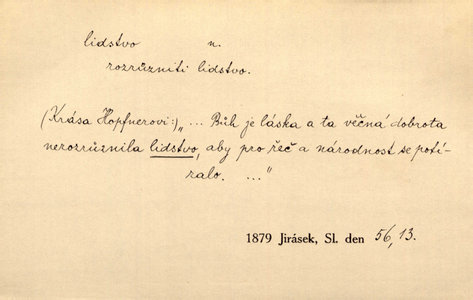 lidstvo n.
rozrůzniti lidstvo.
(Krása Hopfnerovi:) „... Bůh je láska a ta věčná dobrota
nerozrůznila lidstvo, aby pro řeč a národnost se potí-
ralo. ..."
1879 Jirásek, Sl. den 56,13.